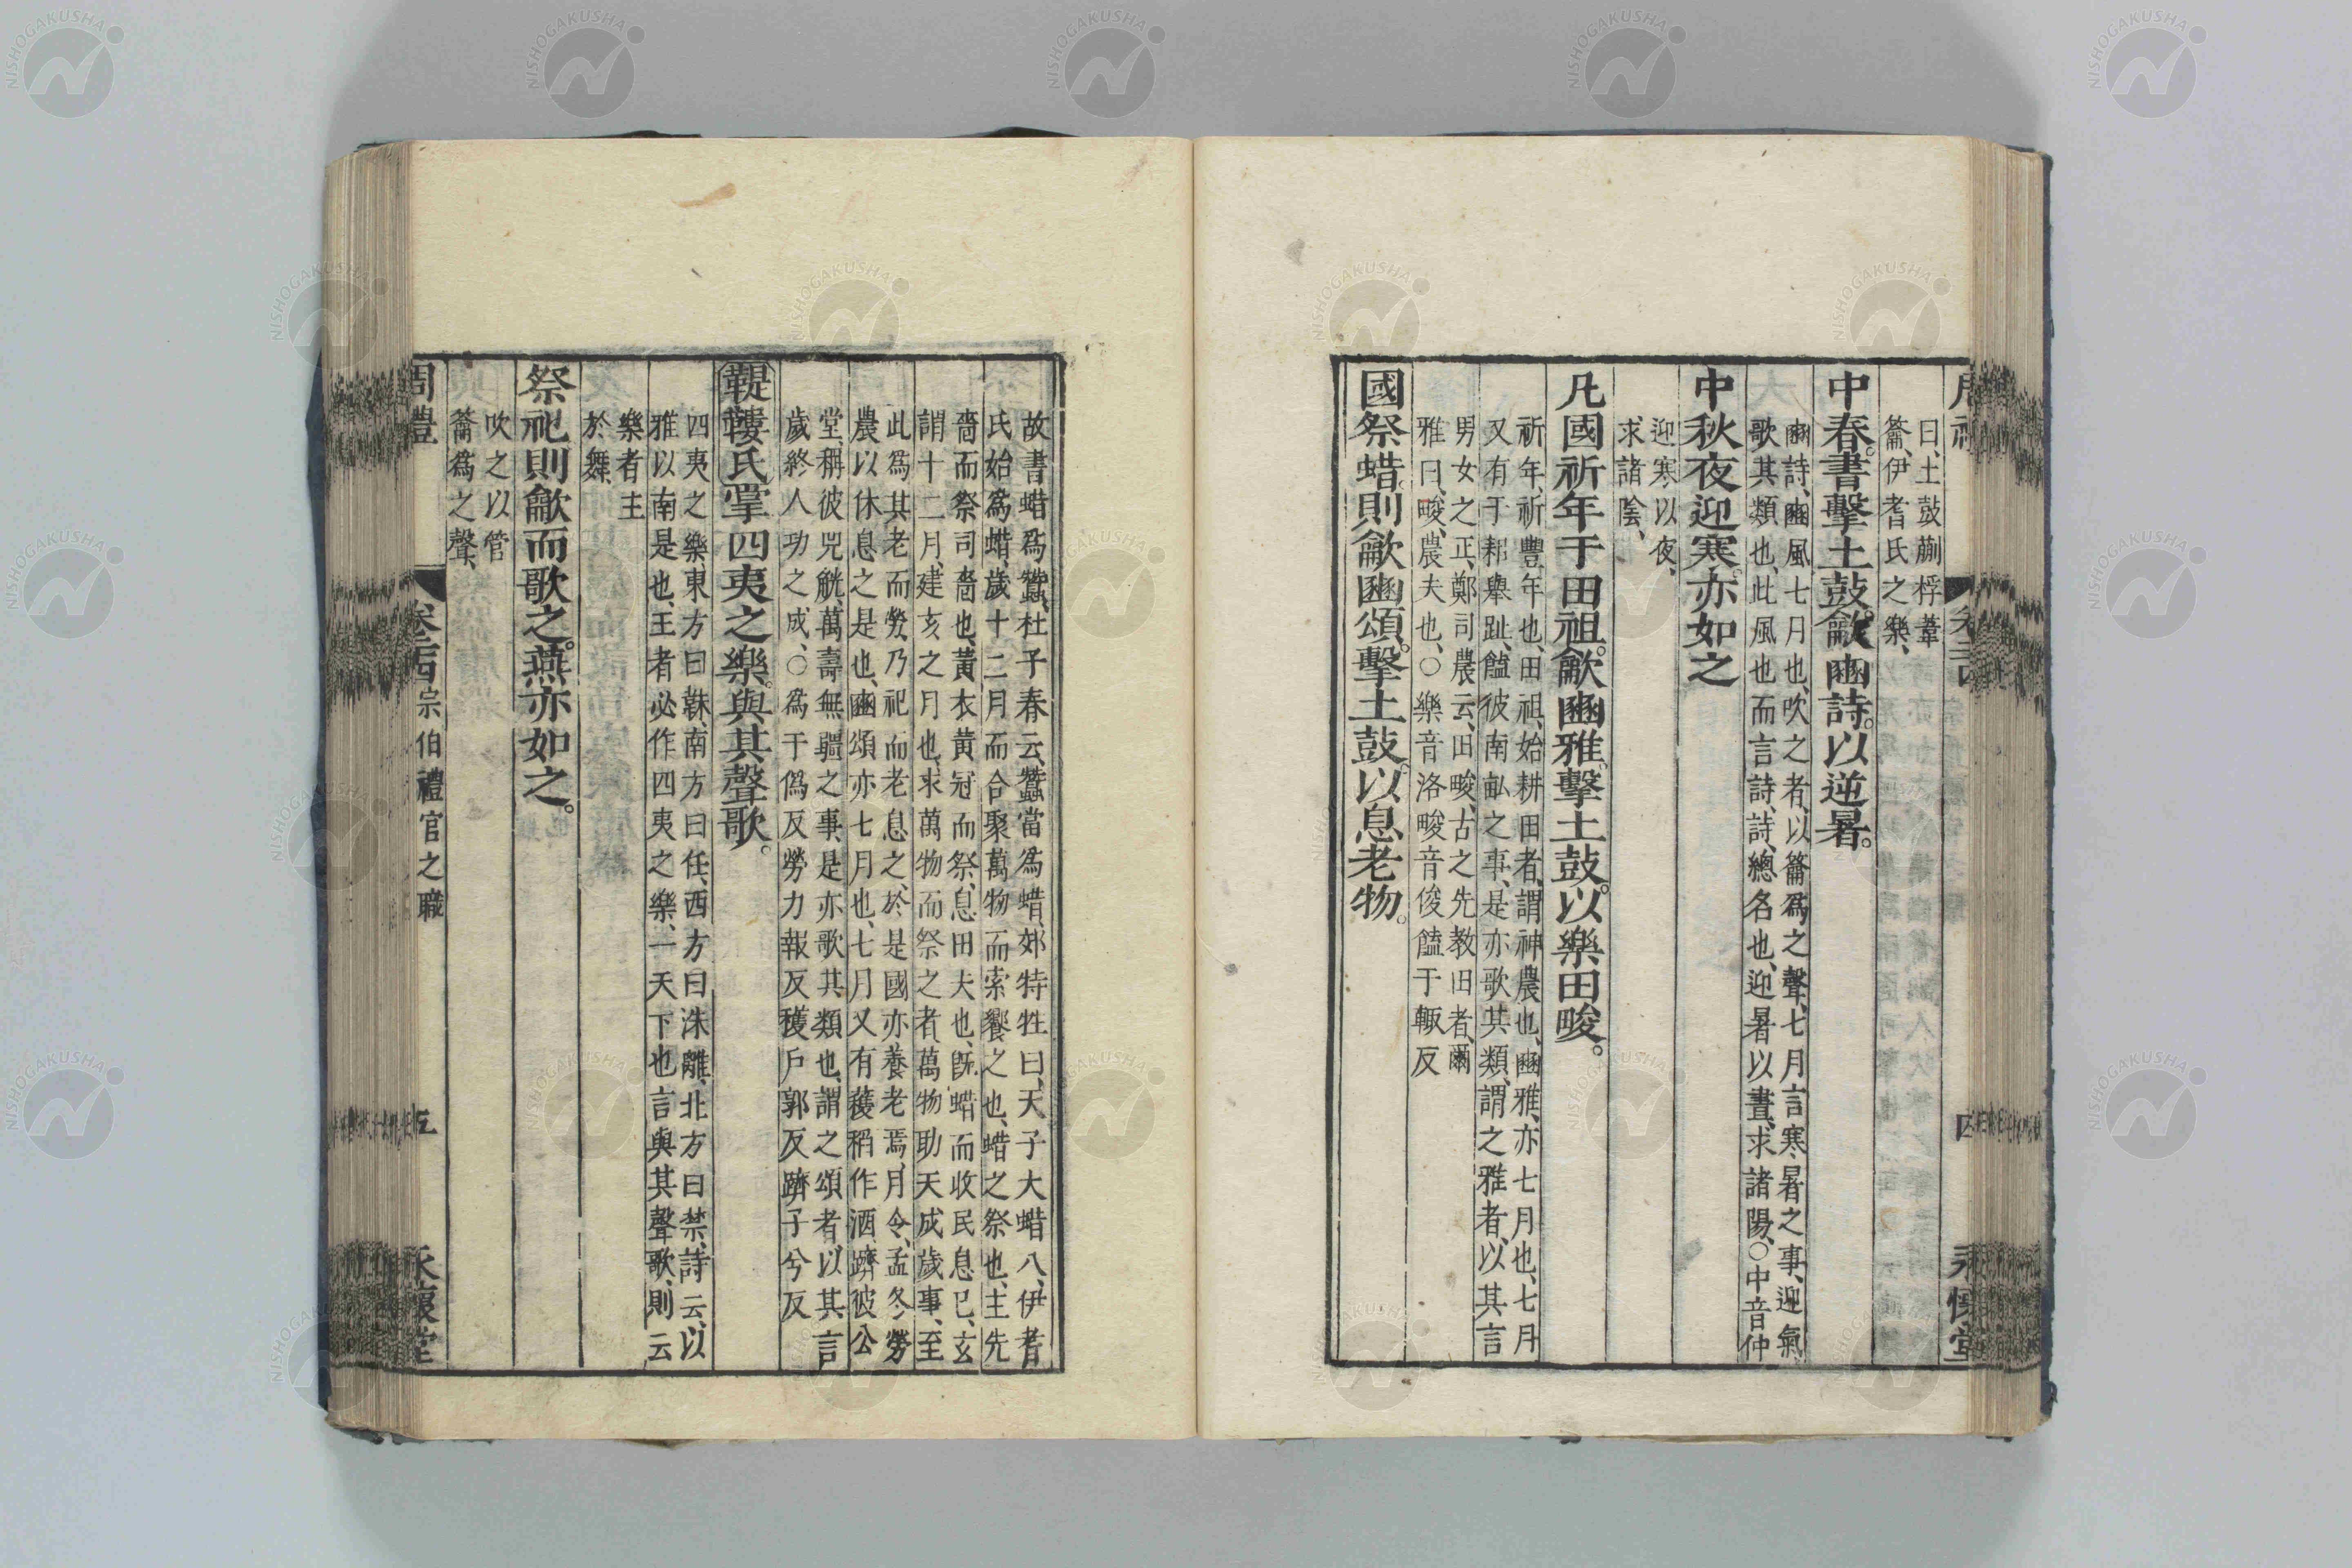 曰、土鼓蒯桴葦
籥、伊耆氏之樂、
中春。晝擊土鼓。龡豳詩。以逆暑。
豳詩、豳風七月也、吹之者、以籥爲之聲、七月言寒暑之事、迎氣
歌其類也、此風也而言詩、詩、總名也、迎暑以晝、求諸陽、○中音仲
中秋夜迎寒。亦如之
迎寒以夜、
求諸陰、
凡國祈年于田祖。龡豳雅。擊土鼓。以樂田畯。
祈年、祈豐年也、田祖、始耕田者、謂神農也、豳雅、亦七月也、七月
又有于耜舉趾、饁彼南畝之事、是亦歌其類、謂之雅者、以其言
男女之正、鄭司農云、田畯、古之先教田者、爾
雅曰、畯、農夫也、○樂音洛畯音俊饁于輒反
國祭蜡。則龡豳頌。擊土鼓。以息老物。
故書蜡爲蠶、杜子春云、蠶當爲蜡、郊特牲曰、天子大蜡八、伊耆
氏始爲蜡、歲十二月而合聚萬物而索饗之也、蜡之祭也、主先
嗇而祭司嗇也、黃衣黃冠而祭、息田夫也、旣蜡而收民息已、玄
謂十二月、建亥之月也、求萬物而祭之者、萬物助天成歲事、至
此爲其老而勞、乃祀而老息之、於是國亦養老焉、月令、孟冬勞
農以休息之是也、豳頌亦七月也、七月又有穫稻作酒、躋彼公
堂、稱彼兕觥、萬壽無疆之事、是亦歌其類也、謂之頌者、以其言
歲終人功之成、○爲于僞反勞力報反穫戶郭反躋子兮反
鞮鞻氏掌四夷之樂。與其聲歌。
四夷之樂、東方曰韎、南方曰任、西方曰洙離、北方曰禁、詩云、以
雅以南是也、王者必作四夷之樂、一天下也、言與其聲歌、則云
樂者主
於舞、
祭祀則龡而歌之。燕亦如之。
吹之以管
籥爲之聲、
周禮 卷二四 宗伯禮官之職 五 永懷堂